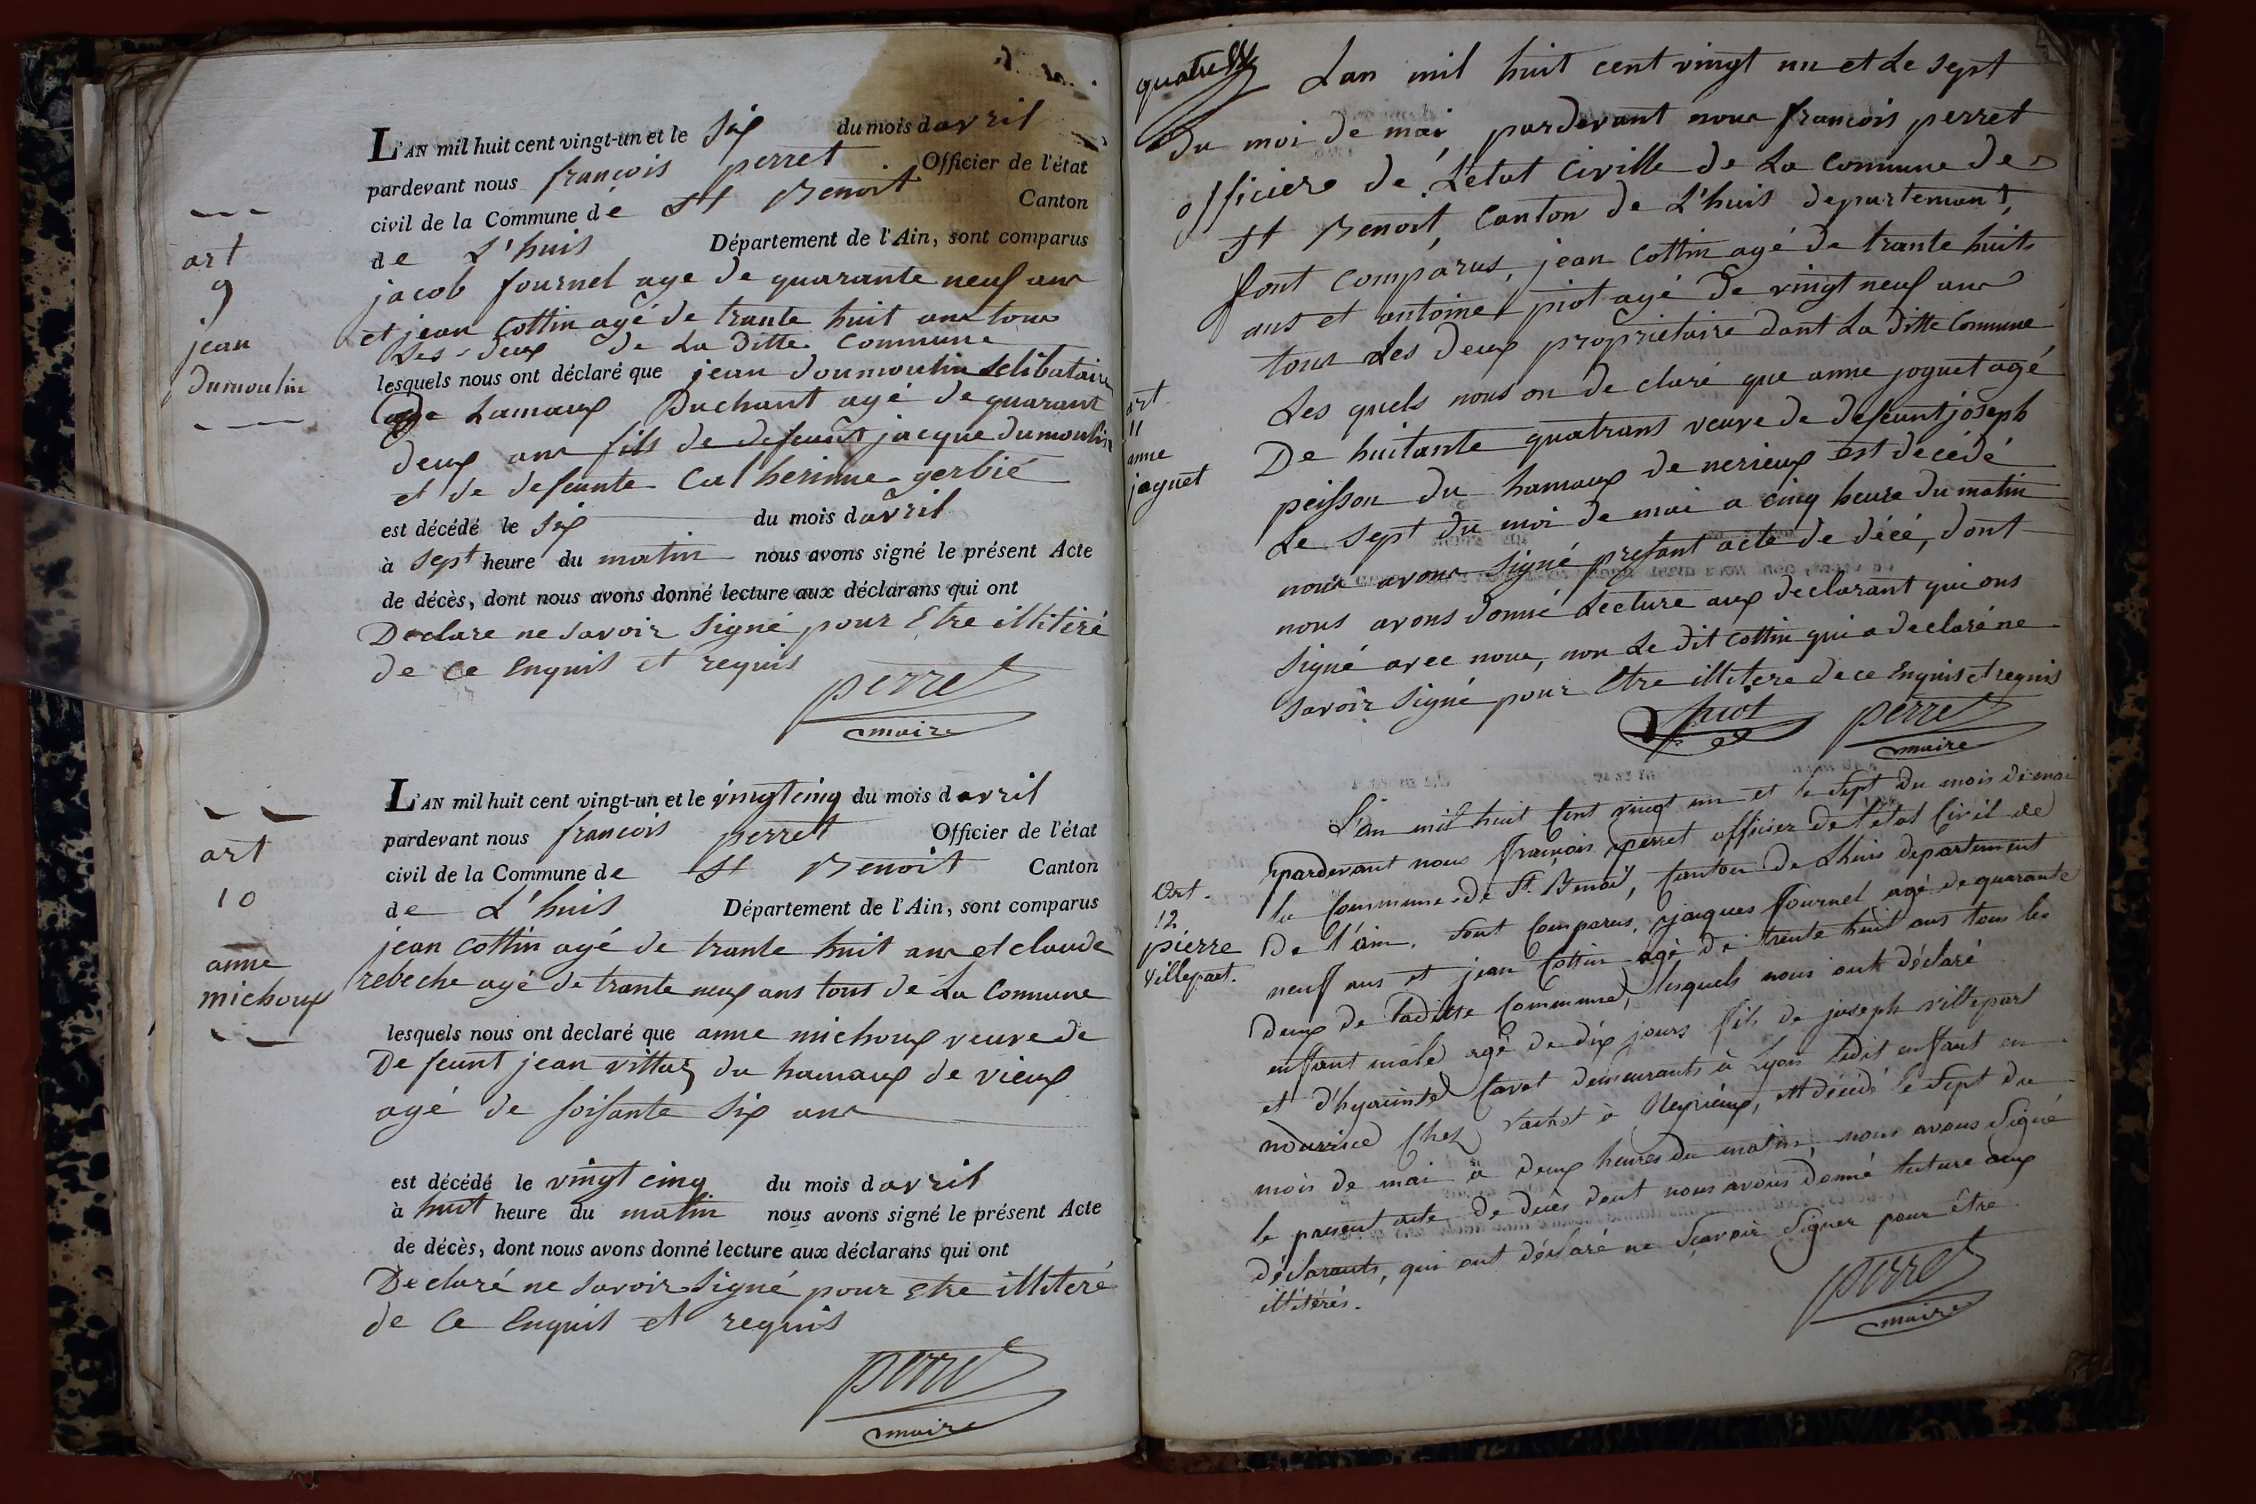 L'AN mil huit cent vingt-un et le six du mois d avril
pardevant nous françois perret Officier de l'état
civil de la Commune de St Benoit Canton
de L'huis Département de l'Ain, sont comparus
jacob fournel age de quarante neuf ans
et jean Cottin agé de trante huit ans tous
Les deux de La ditte Commune
art
9
jean
Dumoulin
lesquels nous ont déclaré que jean doumoulin selibataire
Lamaux Duchant agé de quarant
deux ans fils de defeunt jacque dumoulin
et de defeunte Catherinne gerbié
est décédé le six du mois d avril
à sept heure du matin nous avons signé le présent Acte
de décès, dont nous avons donné lecture aux déclarans qui ont
Declare ne savoir signé pour Etre illitiré
de Ce Enquis et requis
perret
maire
L'AN mil huit cent vingt-un et le vingt cinq du mois d avril
pardevant nous francois perret Officier de l'état
civil de la Commune de St Benoit Canton
de L'huis Département de l'Ain, sont comparus
art
10
anne
michoux
jean cottin agé de trante huit ans et claude
rebeche agé de trante neuf ans tous de La Commune
lesquels nous ont declaré que anne michoux veuve de
Defeunt jean vittoz du hamaux de vieux
agé de soisante six ans
est décédé le vingt cinq du mois d avril
à huit heure du matin nous avons signé le présent Acte
de décès, dont nous avons donné lecture aux déclarans qui ont
Declaré ne savoir signé pour Etre illiteré
de Ce Enquis et requis
perret
maire
Lan mil huit cent vingt un et Le sept
du moi de mai pardevant nous francois perret
officiere de L'etat Civille de La Commune de
St Benoit, Canton de L'huis departement,
sont Comparus, jean Cottin agé de trante huit
ans et antoine piot agé de vingt neuf ans
tous Les deux proprietaire dant La ditte Commune
art
11
anne
joguet
Les quels nous on declaré que anne joguet agé
De huitante quatrans veuve de defeunt joseph
peisson du hamaux de nerieux est decédé
Le sept du moi de mai a cinq heure du matin
nous avons signé presant acte de décé, dont
nous avons donné Lecture aux declarant qui ons
signé avec nous, non Le dit cottin qui a declaré ne
savoir signé pour Etre illitere de ce Enquis et requis
piot perret
maire
L'an mil huit Cent vingt un et le sept du mois de mai
pardevant nous françois perret officier de l'état Civil de
la Commune de St. Benoit, Canton de Lhuis departement
art.
12
pierre
villepart.
De l'ain. sont Comparus, jacques fournel agé de quarante
neuf ans et jean Cottin agé de trente huit ans tous les
deux de ladite Commune, lesquels nous ont déclaré
enfant mâle agé de dix jours fils de joseph villepart
et d'hyacinte Cavat demeurants à Lyon ledit enfant en
nourrice Chez Vachot à Neyrieux, est décédé le sept du
mois de mai à deux heures du matin, nous avons signé
le present acte de décès dont nous avons donné lecture aux
déclarants, qui ont déclaré ne sçavoir signer pour être
illitérés.
perret
maire